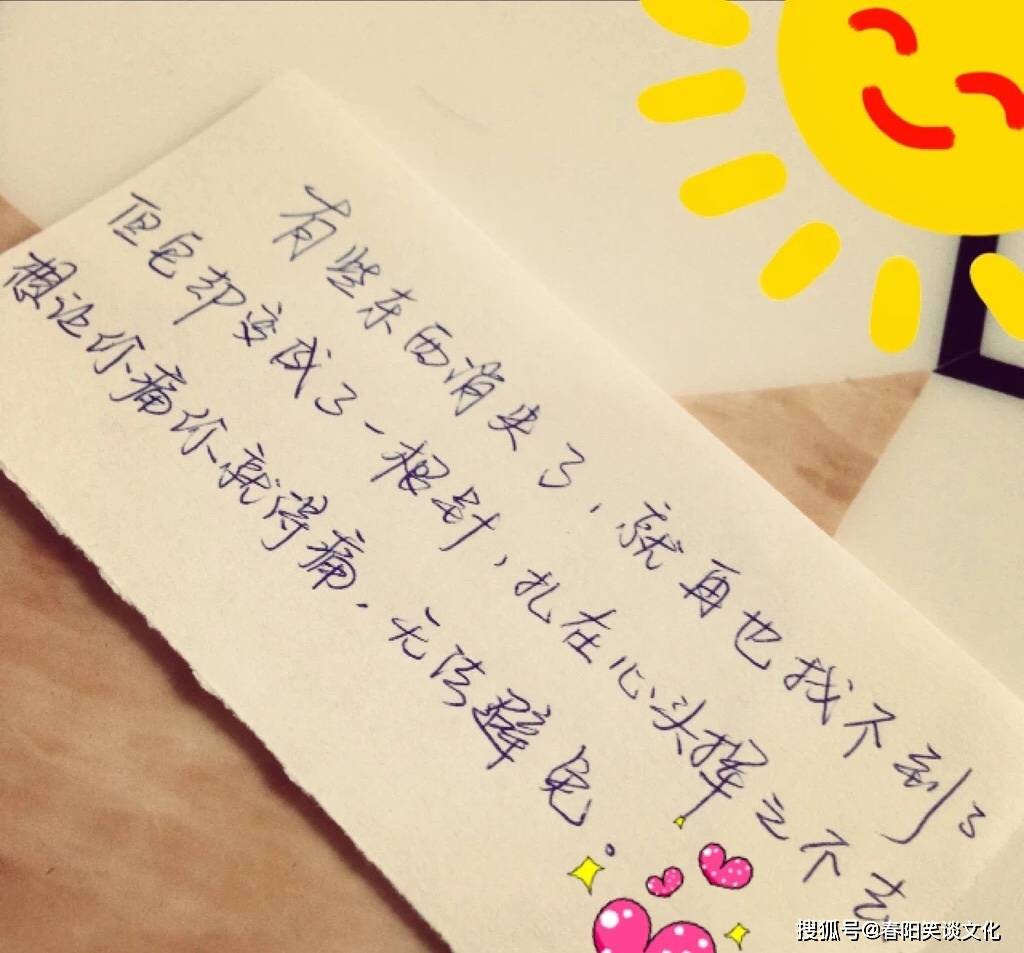 有些东西消失了,就再也找不到了
但它却变成了一根针,扎在心头挥之不去
想让你痛你就得痛.无法避免。
搜狐号@春阳笑谈文化